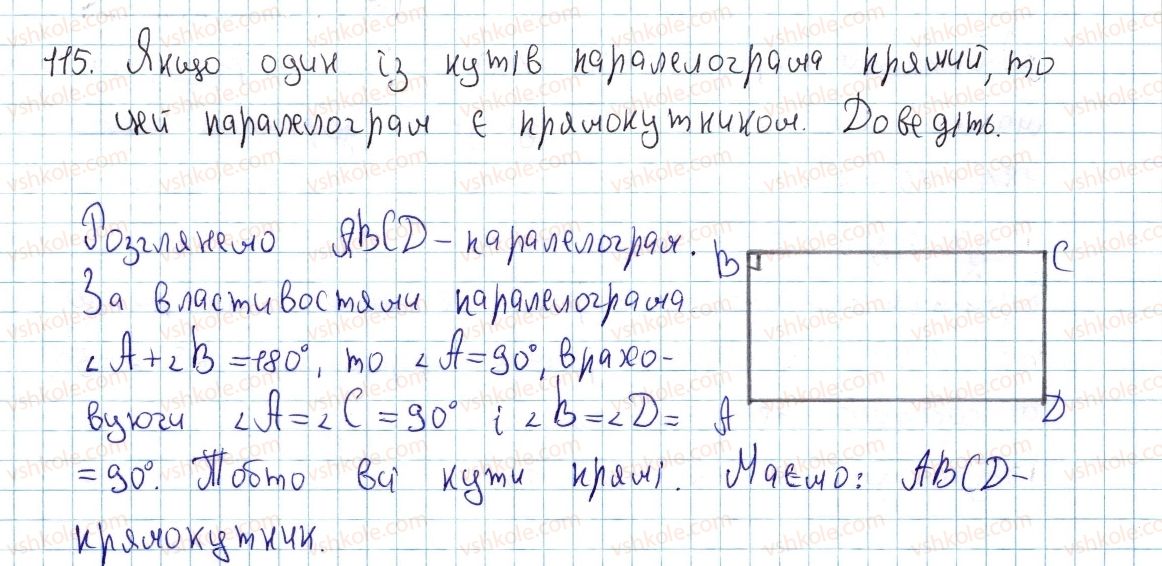 115. Якщо один із кутів паралелограма прямий, то
цей паралелограм є прямокутником. Доведіть.
Розглянемо ABCD - паралелограм.
B C
За властивостями паралелограма
∠A + ∠B = 180°, то ∠A = 90°, врахо-
вуючи ∠A = ∠C = 90° і ∠B = ∠D =
A D
= 90°. Тобто всі кути прямі. Маємо: ABCD -
прямокутник.
vshkole.com